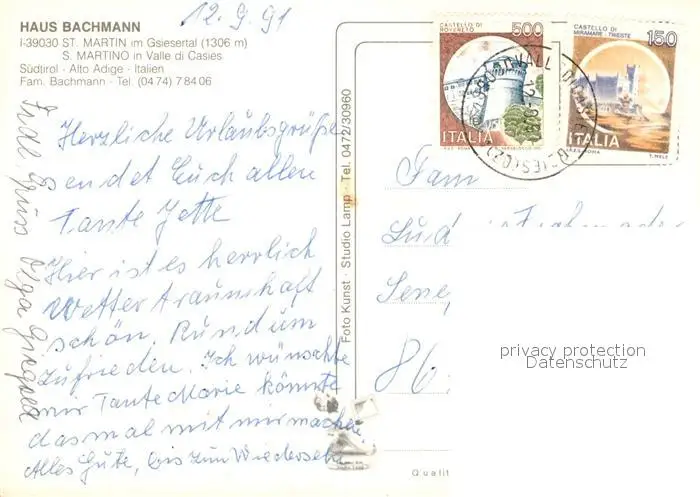 12.9.91
HAUS BACHMANN
I-39030 ST. MARTIN im Gsiesertal (1306 m)
S. MARTINO in Valle di Casies
Südtirol - Alto Adige - Italien
Fam. Bachmann - Tel. (0474) 78406
Herzliche Urlaubsgrüße
endet Euch allen
Tante Jette
Hier ist es herrlich
Wetter traumhaft
schön. Rund um
zufrieden. Ich wünschte
mir Tante Marie könnte
das mal mit mir machen
Alles Gute, bis zum Wiedersehn
Gruss Olga
Foto Kunst - Studio Lamp - Tel. 0472/30960
CASTELLO DI
ROVERETO
500
ITALIA
CASTELLO DI
MIRAMARE - TRIESTE
150
ITALIA
T. MELE
Fam
86
privacy protection
Datenschutz
Qualit